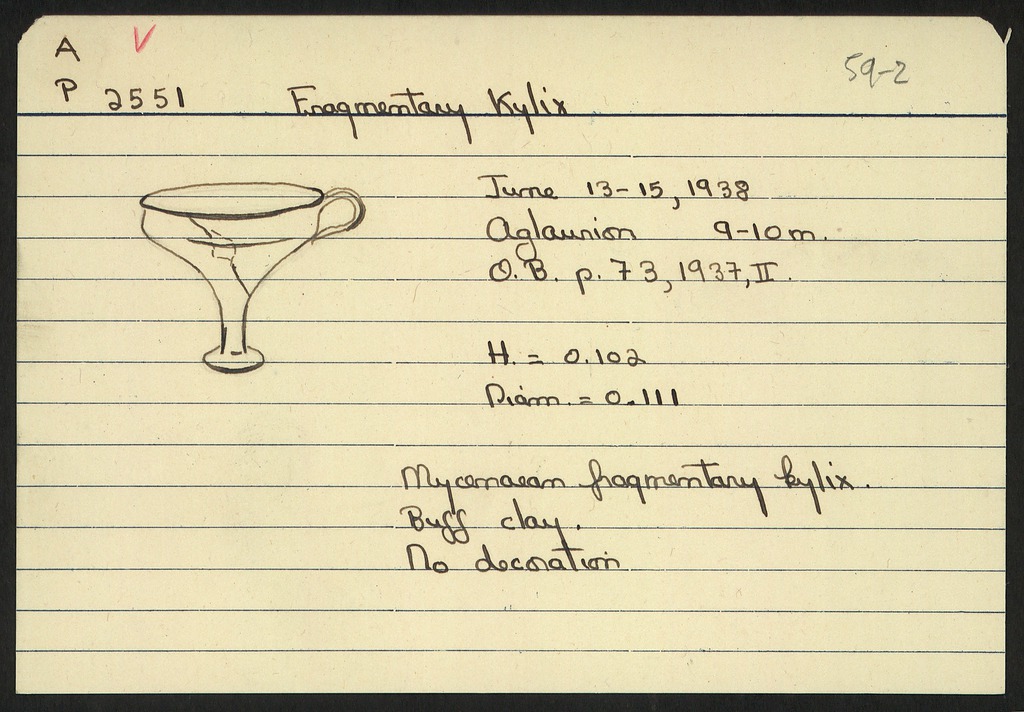 A V
59-2
P 2551 Fragmentary Kylix
June 13-15, 1938
Aglaurion 9-10 m.
O.B. p. 73, 1937, II.
H. = 0.102
Diam. = 0.111
Mycenaean fragmentary kylix.
Buff clay.
No decoration